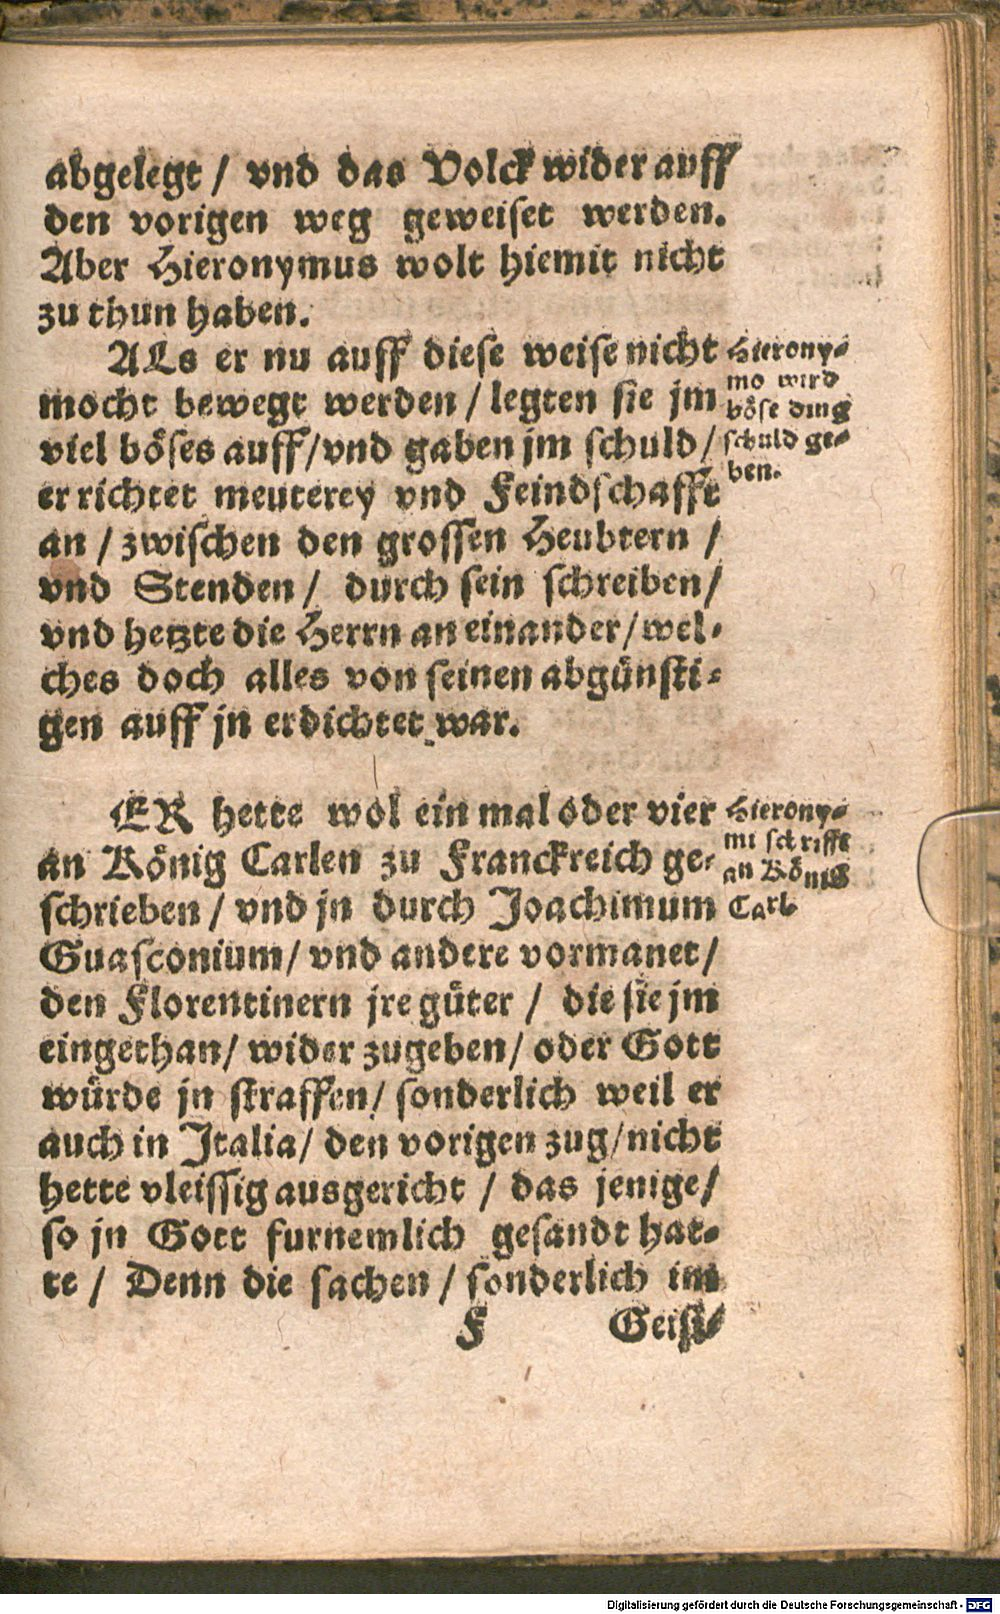 abgelegt / vnd das Volck wider auff
den vorigen weg geweiset werden.
Aber Hieronymus wolt hiemit nicht
zu thun haben.
ALs er nu auff diese weise nicht
mocht bewegt werden / legten sie jm
viel böses auff / vnd gaben jm schuld /
er richtet meuterey vnd Feindschafft
an / zwischen den grossen Heubtern /
vnd Stenden / durch sein schreiben /
vnd hetzte die Herrn an einander / wel-
ches doch alles von seinen abgünsti-
gen auff jn erdichtet war.
Hierony-
mo wird
böse ding
schuld ge-
ben.
ER hette wol ein mal oder vier
an König Carlen zu Franckreich ge-
schrieben / vnd jn durch Joachimum
Guasconium / vnd andere vormanet /
den Florentinern jre güter / die sie jm
eingethan / wider zugeben / oder Gott
würde jn straffen / sonderlich weil er
auch in Italia / den vorigen zug / nicht
hette vleissig ausgericht / das jenige /
so jn Gott furnemlich gesandt hat-
te / Denn die sachen / sonderlich im
Hierony-
mi schrifft
an König
Carl.
F
Geist-
Digitalisierung gefördert durch die Deutsche Forschungsgemeinschaft - DFG